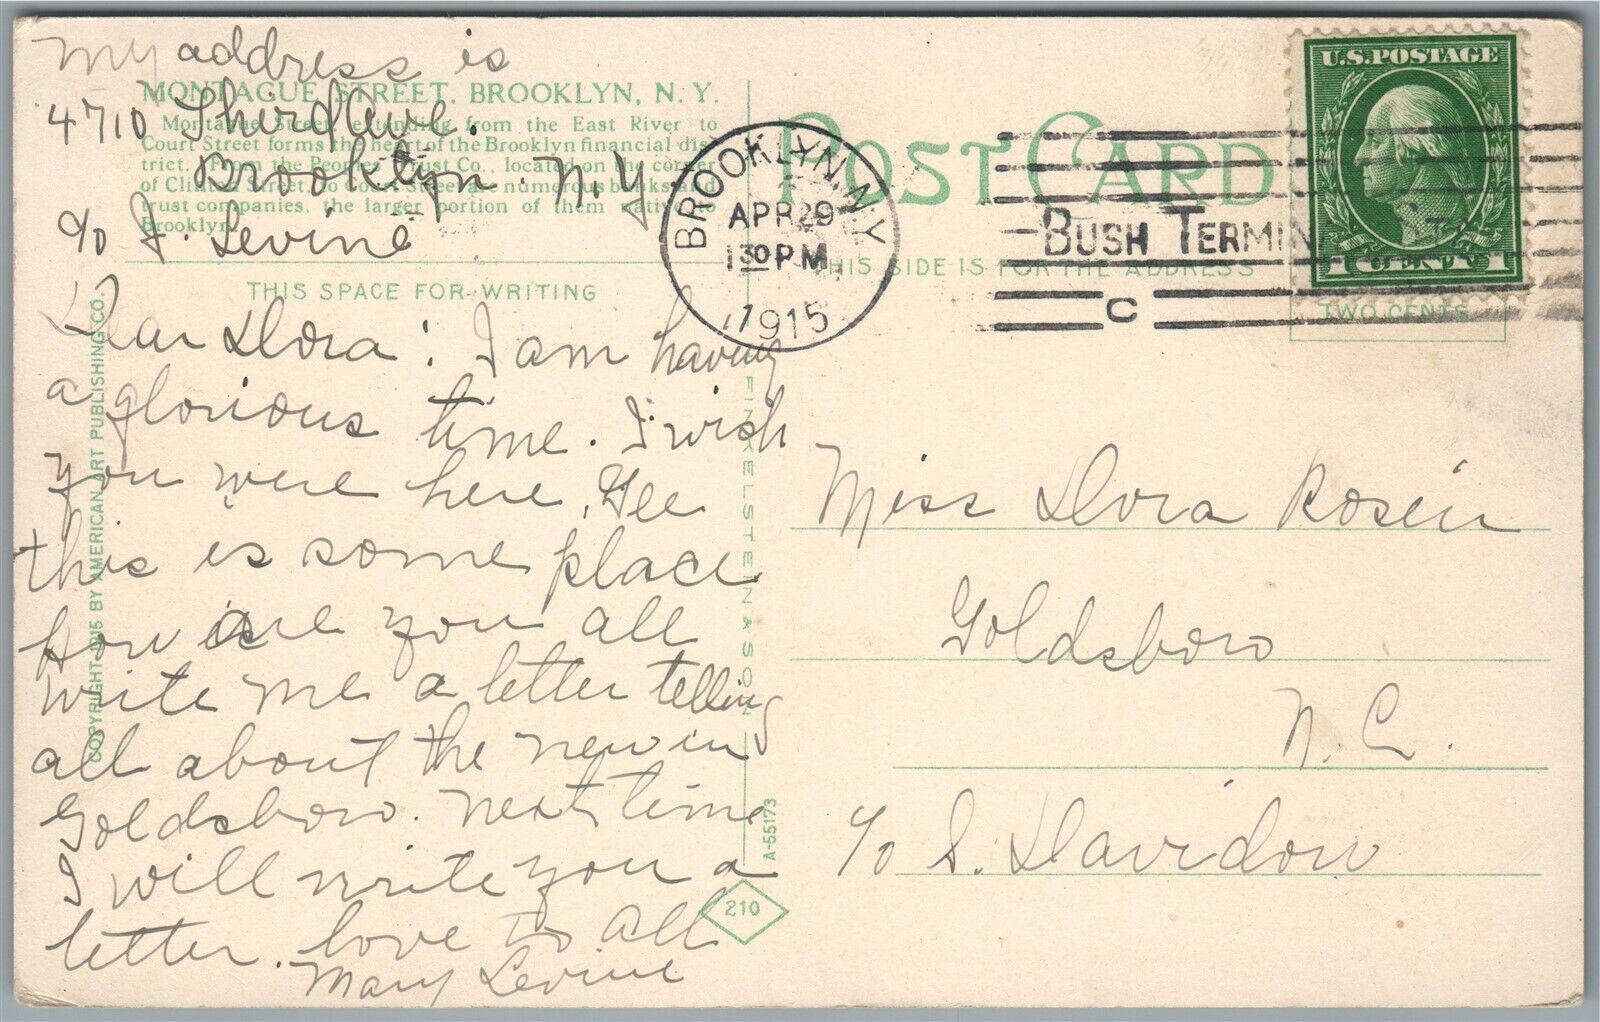 My address is
4710 Third Ave.
Brooklyn. N.Y
c/o I. Levine
MONTAGUE STREET, BROOKLYN, N. Y.
Montague Street, extending from the East River to
Court Street forms the heart of the Brooklyn financial dis-
trict. From the Peoples Trust Co., located on the corner
of Clinton Street, to Court Street are numerous banks and
trust companies, the larger portion of them native to
Brooklyn.
THIS SPACE FOR WRITING
Dear Dora: I am having
a glorious time. I wish
you were here, Gee
this is some place
How are you all
write me a letter telling
all about the new in
Goldsboro. Next time
I will write you a
letter. love to all
Mary Levine
COPYRIGHT 1915 BY AMERICAN ART PUBLISHING CO.
FINKELSTEIN & SON
A-55173
210
POST CARD
THIS SIDE IS FOR THE ADDRESS
BROOKLYN, N.Y.
APR 29
1 30 PM
1915
BUSH TERMINAL STA.
C
U.S. POSTAGE
1 CENT 1
TWO CENTS
Miss Dora Rosen
Goldsboro
N. C.
c/o S. Davidow